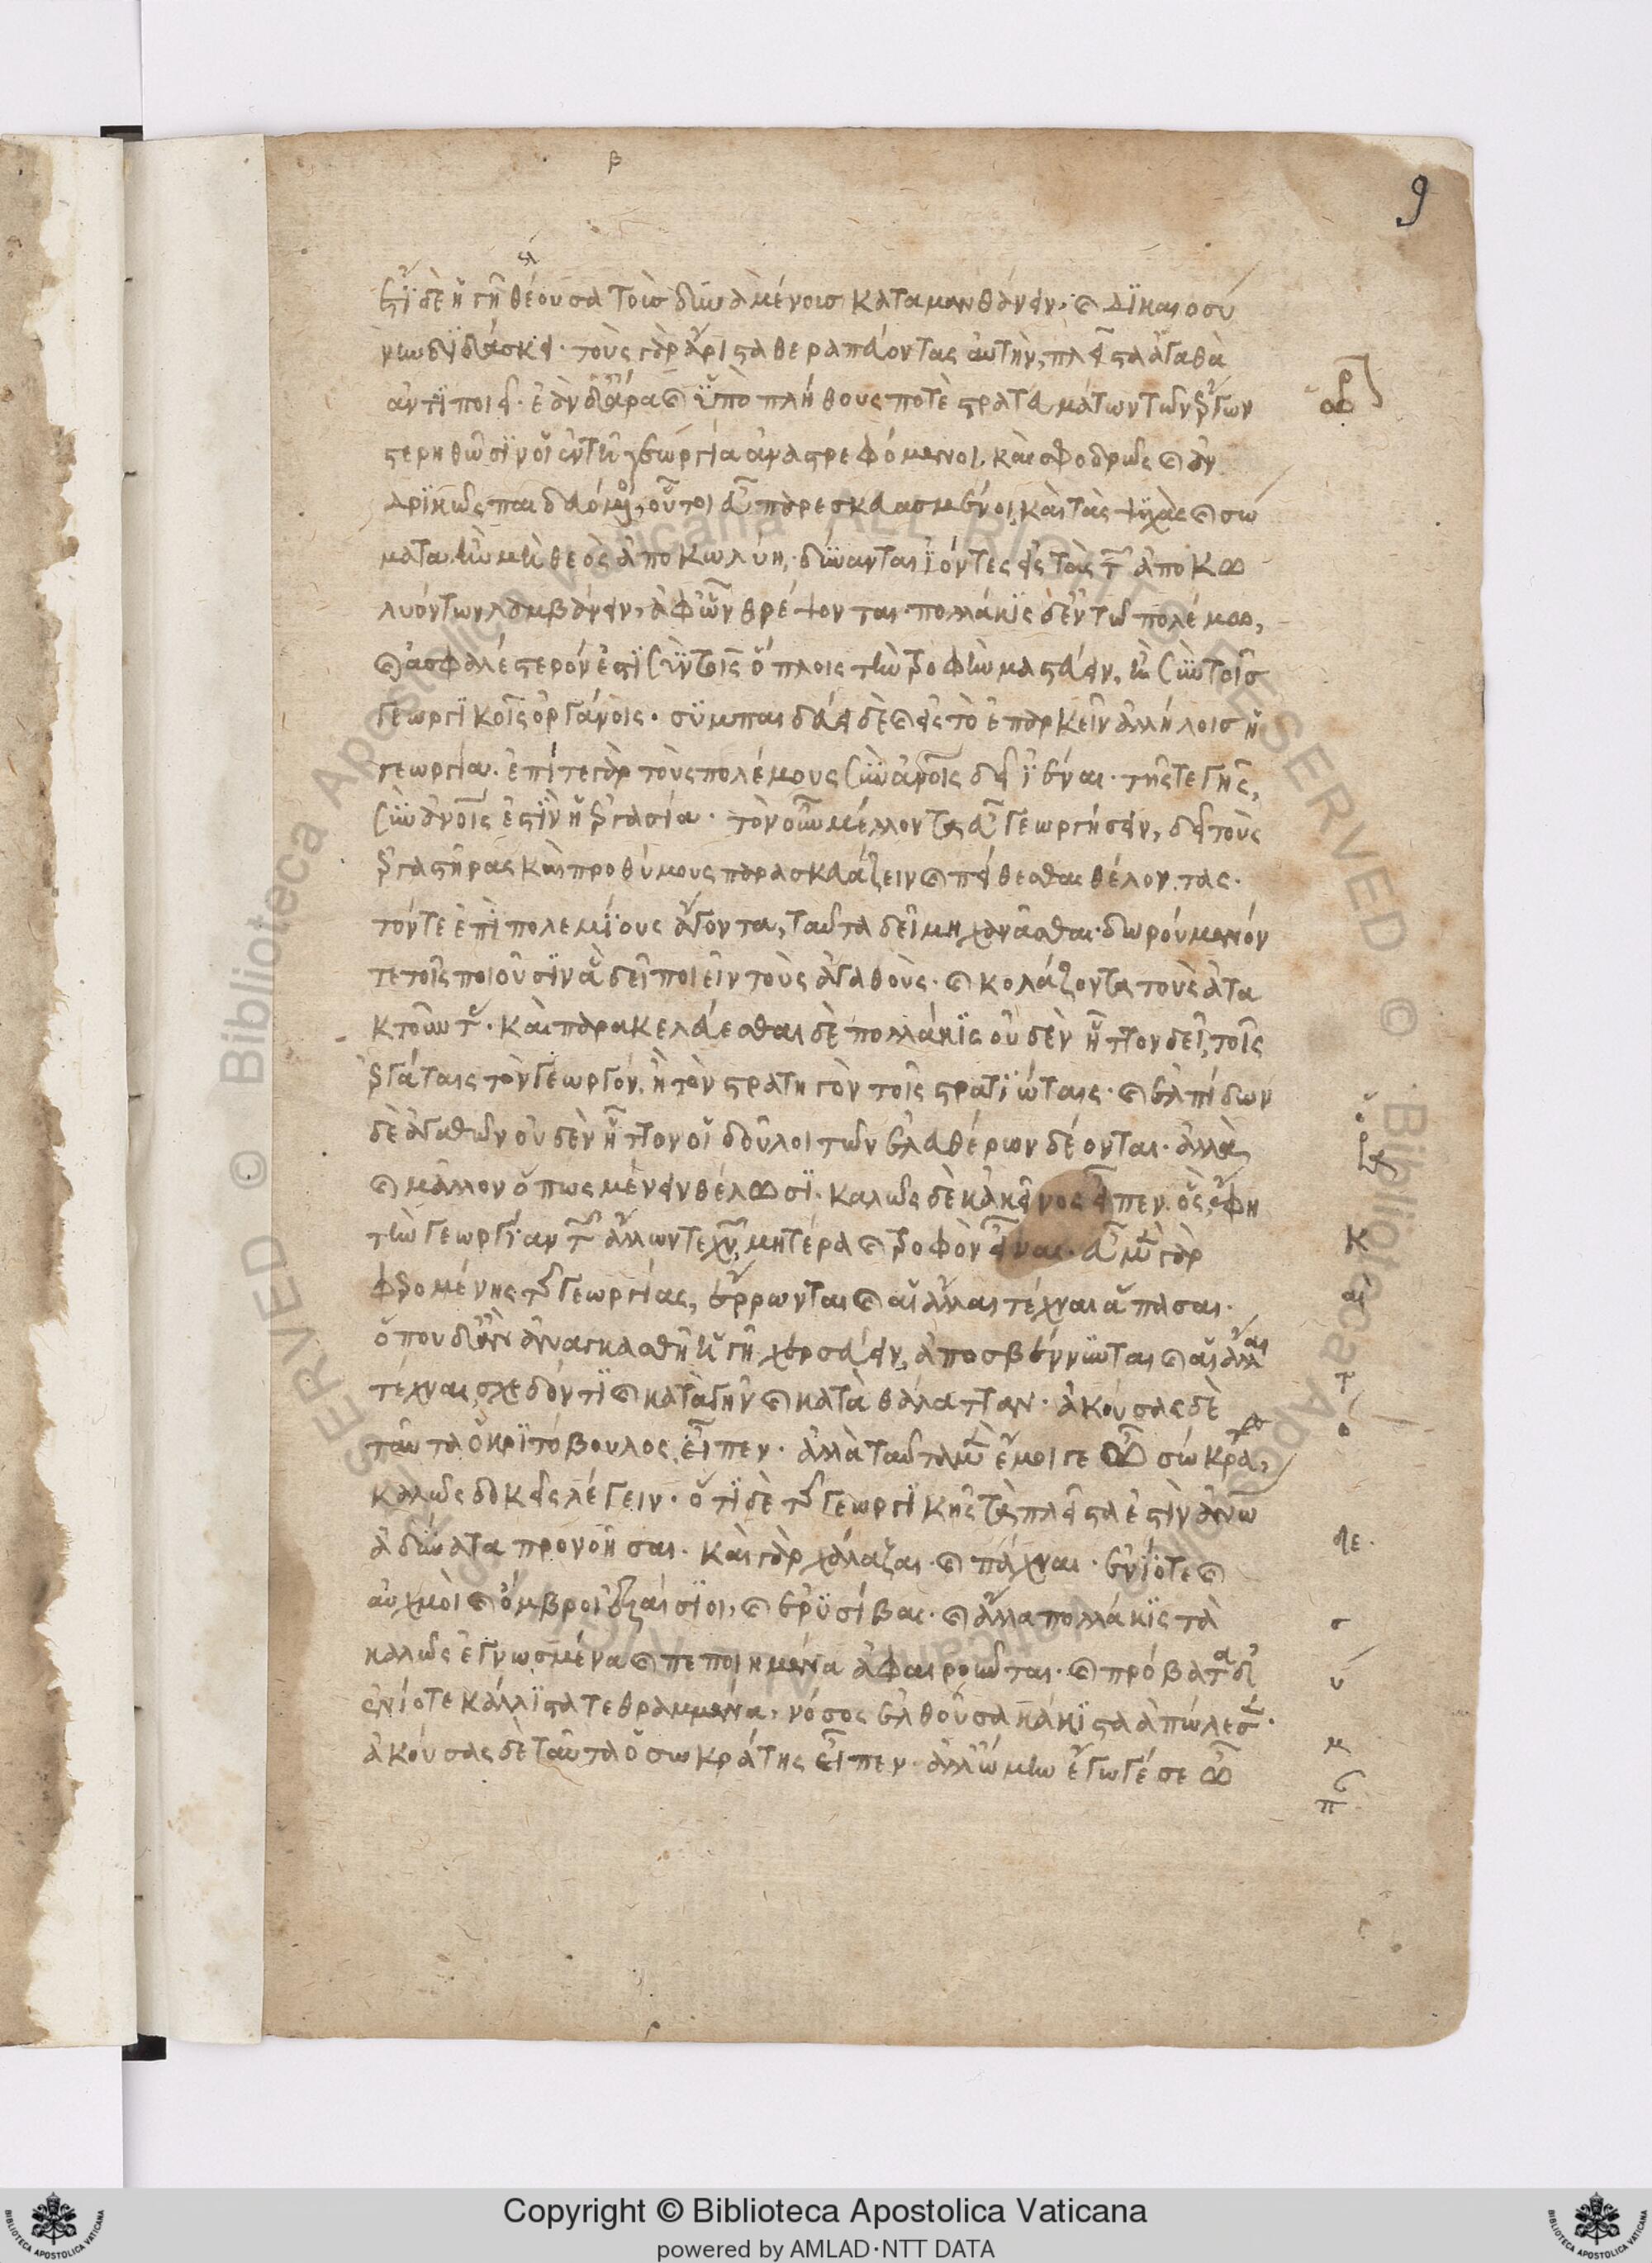 β
9
ἔτι δὲ ἡ γῆ θέουσα τοῖς δυναμένοις καταμανθάνειν· καὶ δικαιοσύ
νην διδάσκει· τοὺς γὰρ ἄριστα θεραπεύοντας αὐτὴν, πλεῖστα ἀγαθὰ
ἀντιποιεῖ· ἐὰν δ' ἄρα καὶ ὑπὸ πλήθους ποτὲ στρατευμάτων τῶν ἔργων
στερηθῶσιν οἱ ἐν τῆ γεωργία ἀναστρεφόμενοι, καὶ σφοδρῶς καὶ ἀν
δρικῶς παιδευόμενοι, οὗτοι εὖ παρεσκευασμένοι, καὶ τὰς ψυχὰς καὶ σώ
ματα. ἢν μὴ θεὸς ἀποκωλύη, δύνανται ἰόντες εἰς τὰς τῶν ἀποκω
λυόντων λαμβάνειν, ἀφ' ὧν θρέψονται· πολλάκις δ' ἐν τῶ πολέμω,
καὶ ἀσφαλέστερόν ἐστι σὺν τοῖς ὅπλοις τὴν τροφὴν μαστεύειν, ἢ σὺν τοῖς
γεωργικοῖς ὀργάνοις· συμπαιδεύει δὲ καὶ εἰς τὸ ἐπαρκεῖν ἀλλήλοις ἡ
γεωργία. ἐπί τε γὰρ τοὺς πολέμους σὺν ἀνοῖς δεῖ ἰέναι· τῆς τε γῆς,
σὺν ἀνοῖς ἐστὶν ἡ ἐργασία· τὸν οὖν μέλλοντα εὖ γεωργήσειν, δεῖ τοὺς
ἐργαστῆρας καὶ προθύμους παρασκευάζειν καὶ πείθεσθαι θέλοντας·
τόν τε ἐπὶ πολεμίους ἄγοντα, ταῦτα δεῖ μηχανᾶσθαι· δωρούμενόν
τε τοῖς ποιοῦσιν ἃ δεῖ ποιεῖν τοὺς ἀγαθοὺς· καὶ κολάζοντα τοὺς ἀτα
κτοῦντας· καὶ παρακελεύεσθαι δὲ πολλάκις οὐδὲν ἧττον δεῖ, τοῖς
ἐργάταις τὸν γεωργόν, ἢ τὸν στρατηγὸν τοῖς στρατιώταις· καὶ ἐλπίδων
δὲ ἀγαθῶν οὐδὲν ἧττον οἱ δοῦλοι τῶν ἐλευθέρων δέονται· ἀλλὰ
καὶ μᾶλλον ὅπως μένειν θέλωσι. καλῶς δὲ κἀκεῖνος εἶπεν. ὃς ἔφη
τὴν γεωργίαν τῶν ἄλλων τεχνῶν, μητέρα καὶ τροφὸν εἶναι· εὖ μὲν γὰρ
φερομένης τῆς γεωργίας, ἔρρωνται καὶ αἱ ἄλλαι τέχναι ἅπασαι·
ὅπου δ' ἂν ἀναγκασθῆ ἡ γῆ χερσεύειν, ἀποσβέννυνται καὶ αἱ ἄλλαι
τέχναι, σχεδόν τι καὶ κατὰ γῆν καὶ κατὰ θάλατταν· ἀκούσας δὲ
ταῦτα ὁ κριτόβουλος, εἶπεν· ἀλλὰ ταῦτα μὲν ἔμοιγε ὦ σώκρατες,
καλῶς δοκεῖς λέγειν· ὅτι δὲ τῆς γεωργικῆς τὰ πλεῖστα ἐστὶν ἀνω
ἀδύνατα προνοῆσαι. καὶ γὰρ χάλαζαι· καὶ πάχναι· ἐνίοτε καὶ
αὐχμοὶ καὶ ὄμβροι ἐξαίσιοι, καὶ ἐρυσίβαι· καὶ ἄλλα πολλάκις τὰ
καλῶς ἐγνωσμένα καὶ πεποιημένα ἀφαιροῦνται· καὶ πρόβατα δ'
ἐνίοτε κάλλιστα τεθραμμένα, νόσος ἐλθοῦσα κάκιστα ἀπώλεσεν·
ἀκούσας δὲ ταῦτα ὁ σωκράτης εἶπεν· ἀλλ' ᾤμην ἔγωγέ σε ὦ